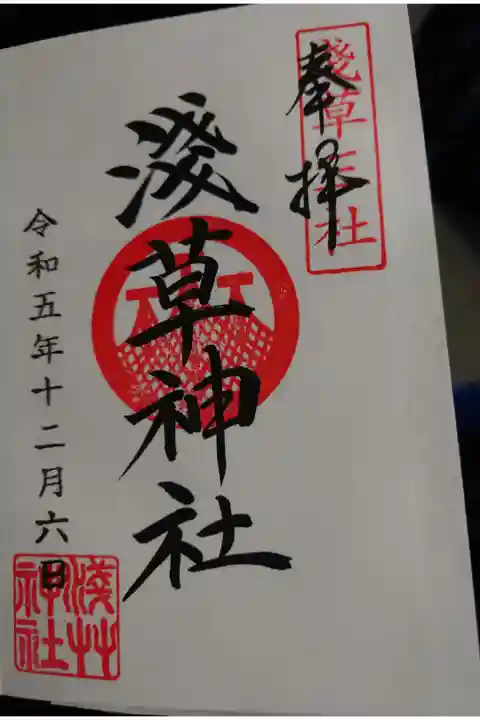 奉拝
淺草三社
淺草神社
令和五年十二月六日
淺草神社